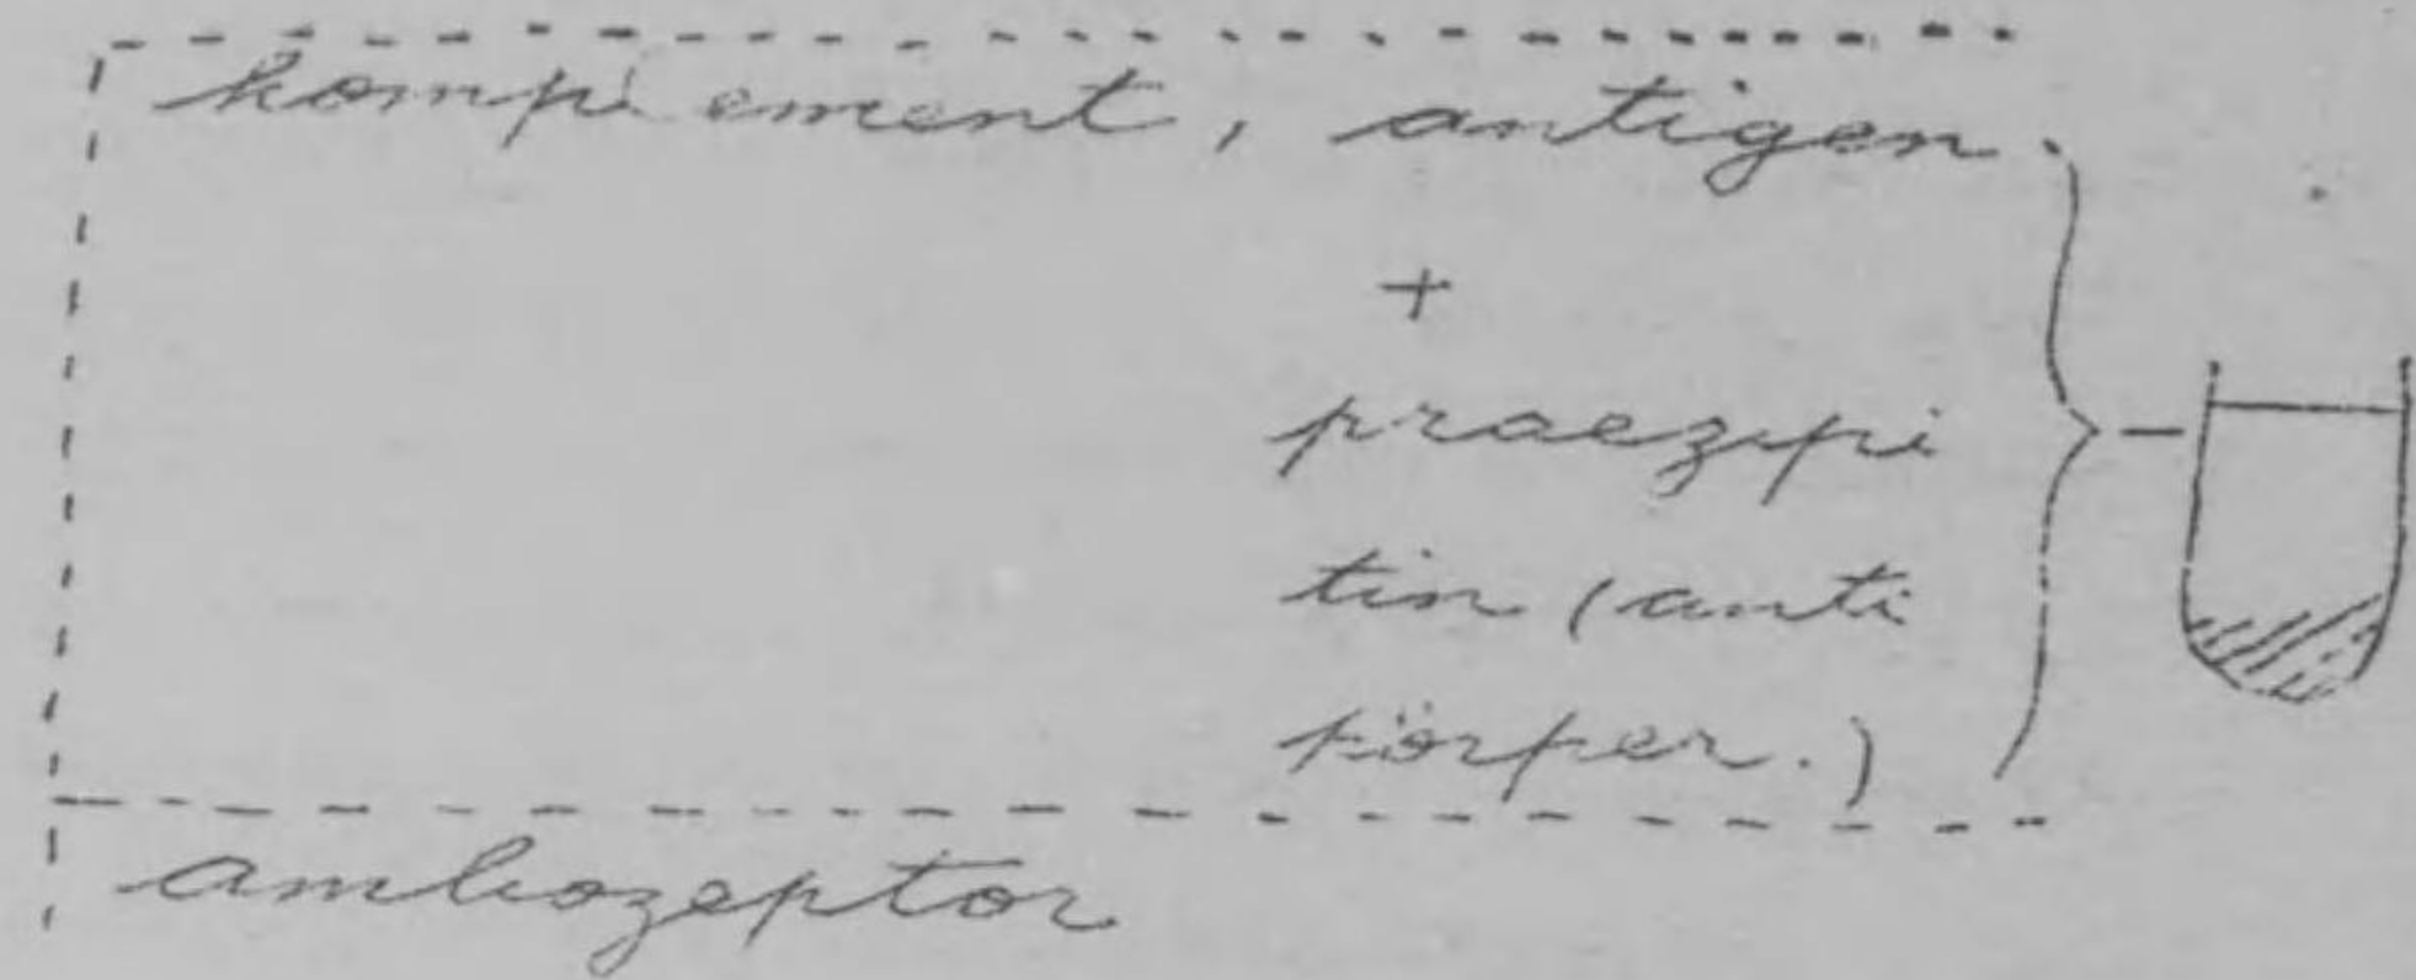 komplement, antigen.
+
praezipi
tin (anti
körper.)
ambozeptor